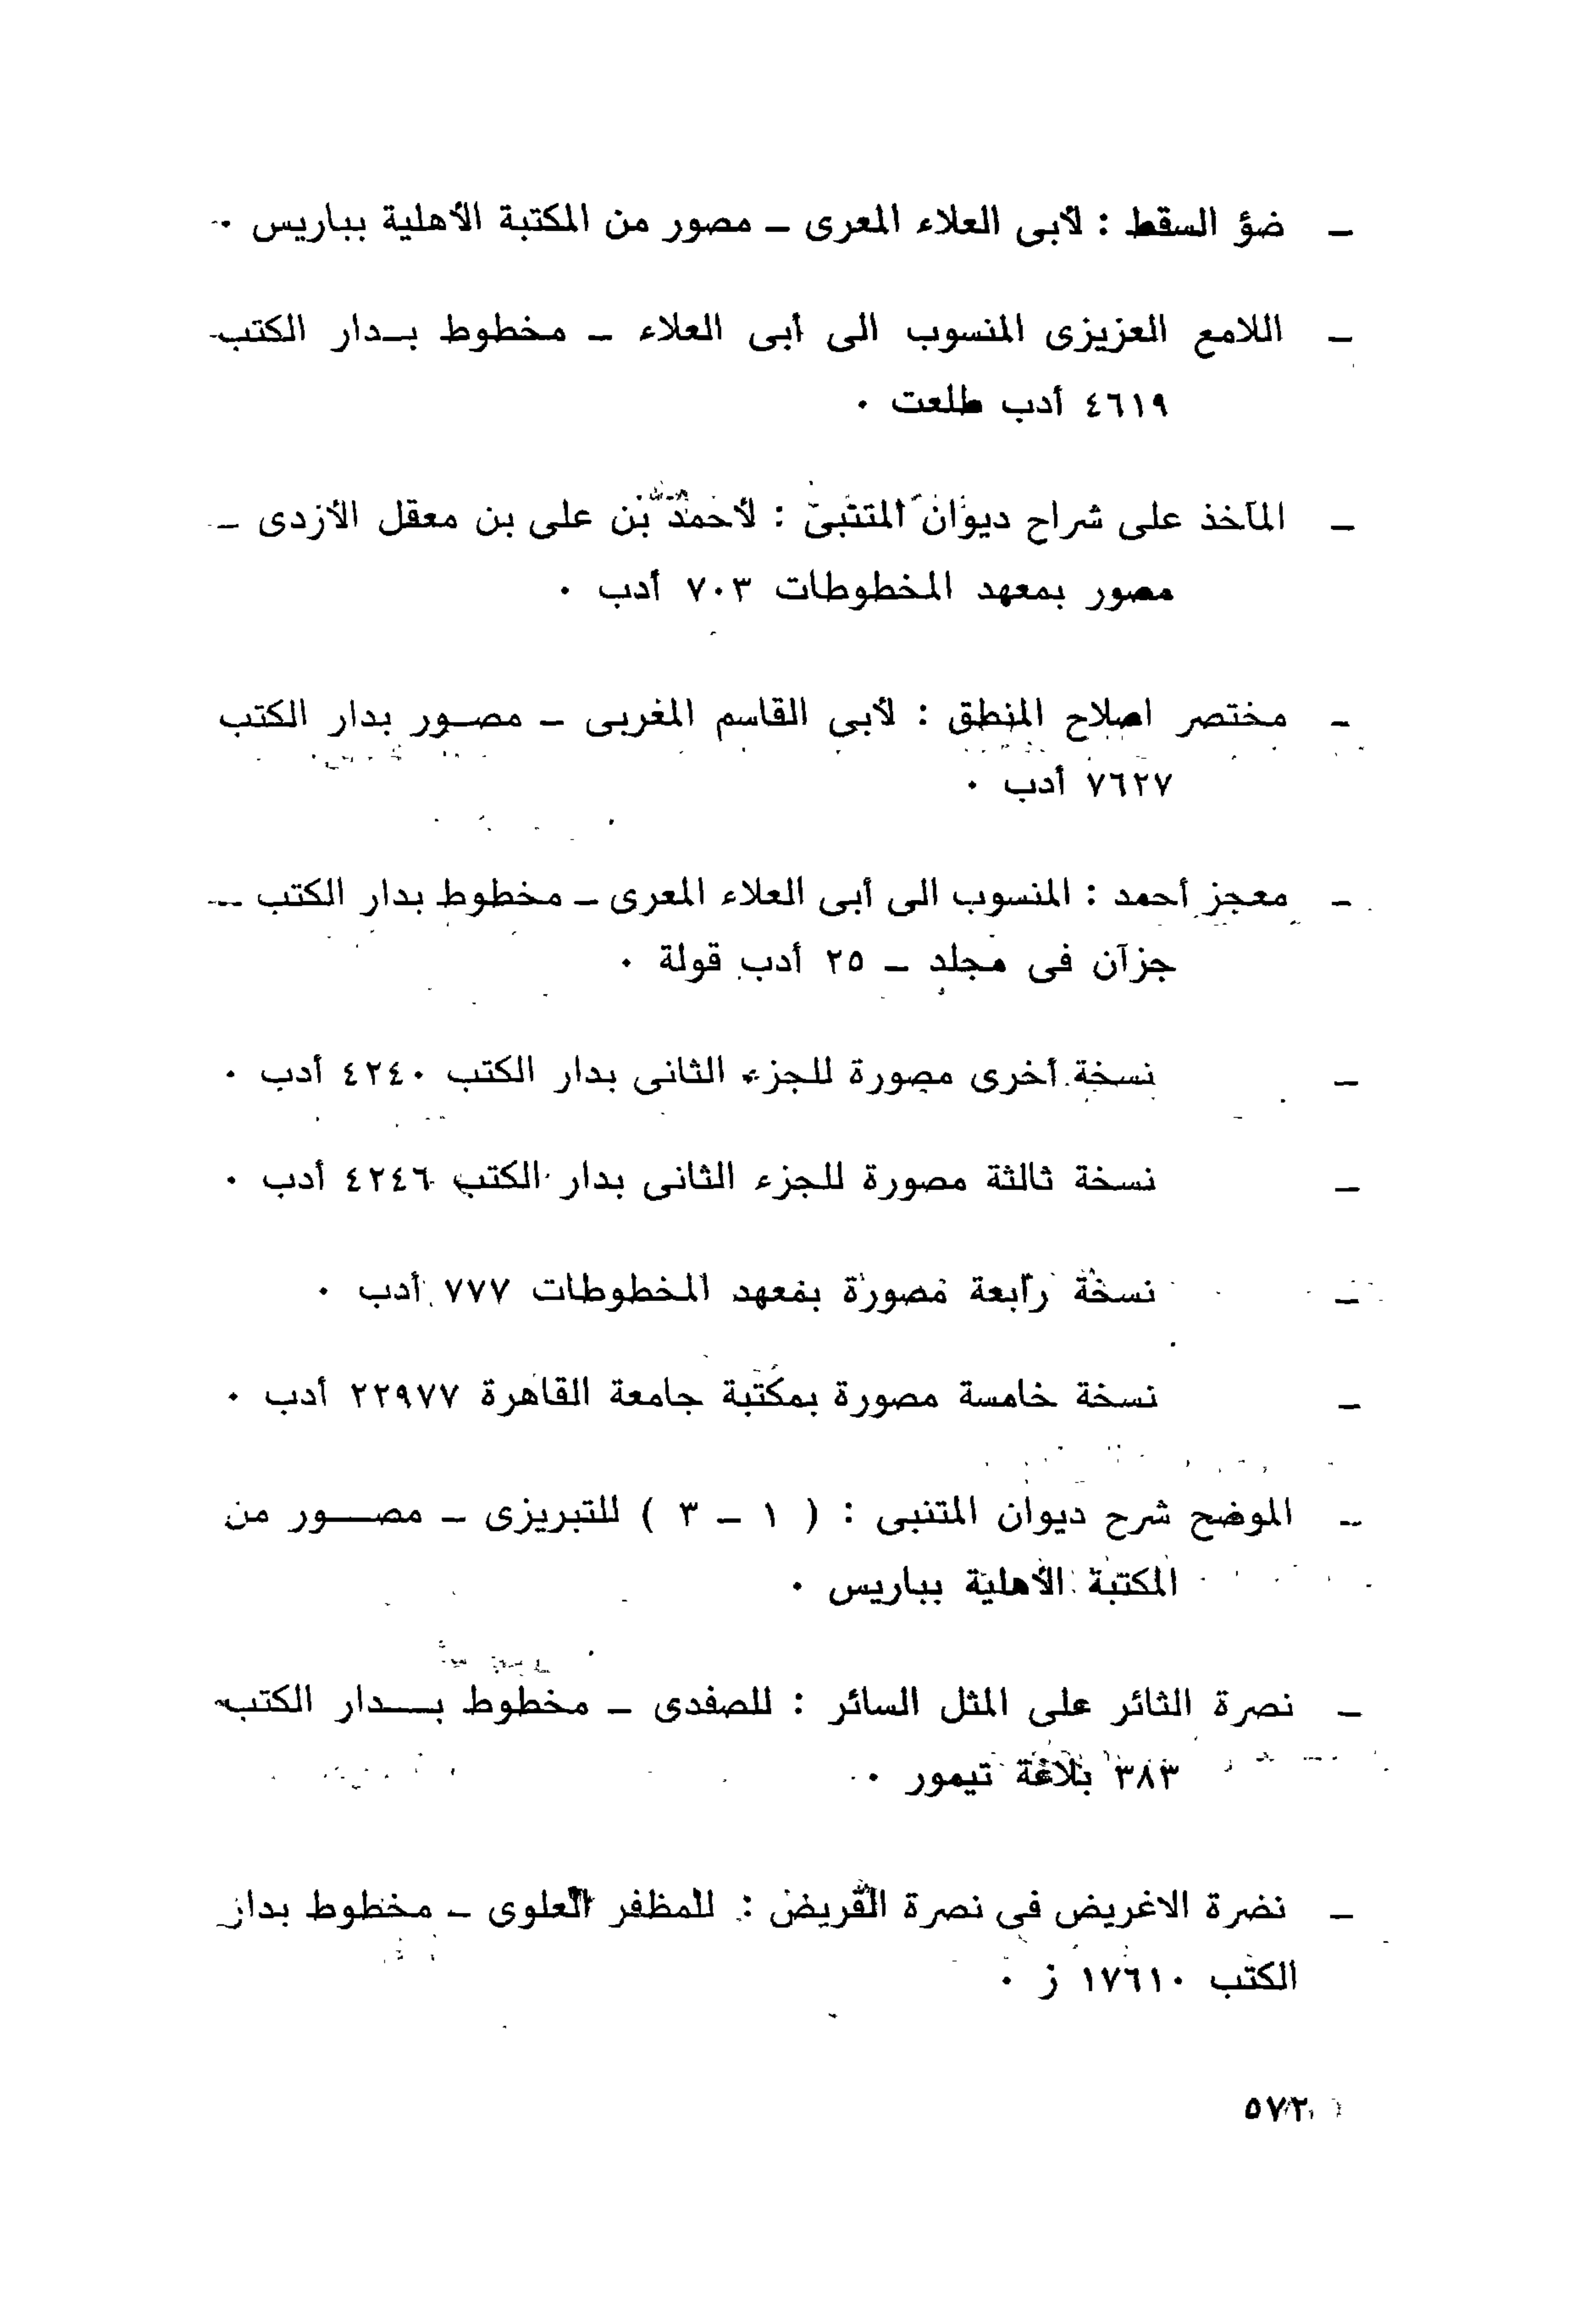 ـ ضؤ السقط : لأبى العلاء المعرى ـ مصور من المكتبة الأهلية بباريس ٠
ـ اللامع العزيزى المنسوب الى أبى العلاء ـ مخطوط بـدار الكتب ـ
٤٦١٩ أدب طلعت ٠
ـ المآخذ على شراح ديوان المتنبى : لأحمد بن على بن معقل الأزدى ـ
مصور بمعهد المخطوطات ٧٠٣ أدب ٠
ـ مختصر اصلاح المنطق : لأبى القاسم المغربى ـ مصـور بدار الكتب
٧٦٢٧ أدب ٠
ـ معجز أحمد : المنسوب الى أبى العلاء المعرى ـ مخطوط بدار الكتب ـ
جزآن فى مجلد ـ ٢٥ أدب قولة ٠
ـ نسخة أخرى مصورة للجزء الثانى بدار الكتب ٤٢٤٠ أدب ٠
ـ نسخة ثالثة مصورة للجزء الثانى بدار الكتب ٤٢٤٦ أدب ٠
ـ نسخة رابعة مصورة بمعهد المخطوطات ٧٧٧ أدب ٠
ـ نسخة خامسة مصورة بمكتبة جامعة القاهرة ٢٢٩٧٧ أدب ٠
ـ الموضح شرح ديوان المتنبى : ( ١ ـ ٣ ) للتبريزى ـ مصـــور من
المكتبة الأهلية بباريس ٠
ـ نصرة الثائر على المثل السائر : للصفدى ـ مخطوط بـــدار الكتب ـ
٣٨٣ بلاغة تيمور ٠
ـ نضرة الاغريض فى نصرة القريض : للمظفر العلوى ـ مخطوط بدار
الكتب ١٧٦١٠ ز ٠
٥٧٢